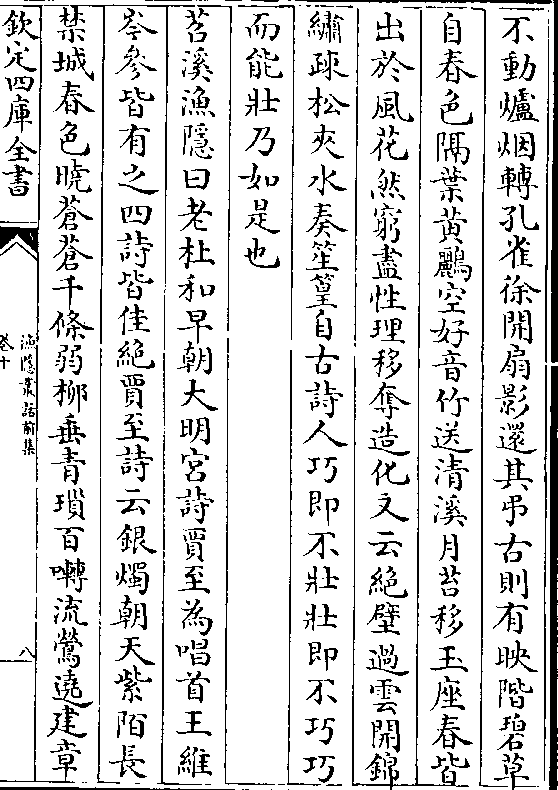 不動爐烟轉孔雀徐開扇影還其弔古則有映階碧草
自春色隔葉黄鸝空好音竹送清溪月苔移玉座春皆
出於風花然窮盡性理移奪造化又云絶壁過雲開錦
繡疎松夾水奏笙篁自古詩人巧即不壯壯即不巧巧
而能壯乃如是也
苕溪漁隱曰老杜和早朝大明宫詩賈至為唱首王維
岑參皆有之四詩皆佳絶賈至詩云銀燭朝天紫陌長
禁城春色曉蒼蒼千條弱柳垂青瑣百囀流鶯遶建章
欽定四庫全書
漁隱叢話前集
卷十
八